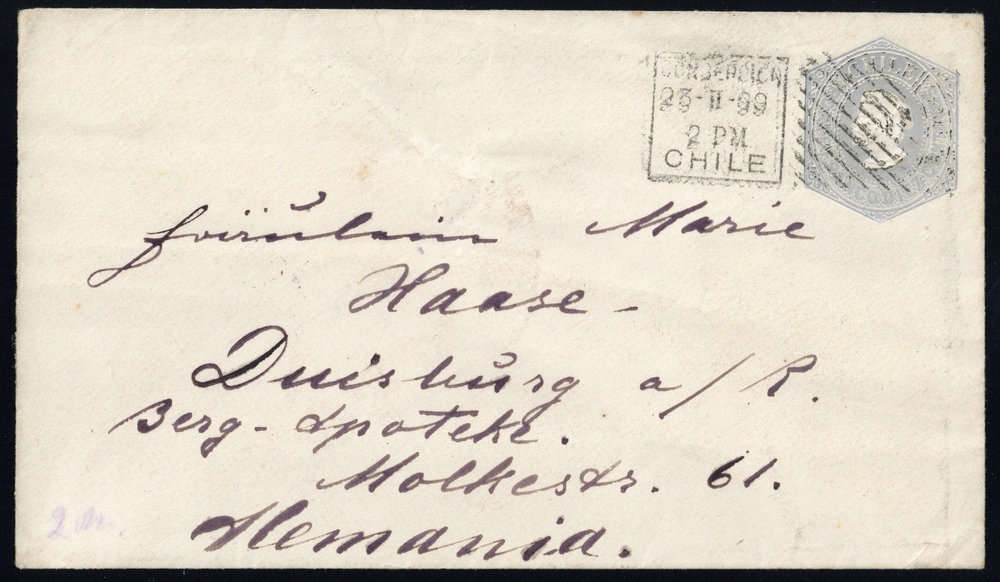 CONCEPCION
23-II-99
2 PM
CHILE
CHILE
Fräulein Marie
Haase-
Duisburg a/R.
Berg-Apoteke.
Molkestr. 61.
Alemania.